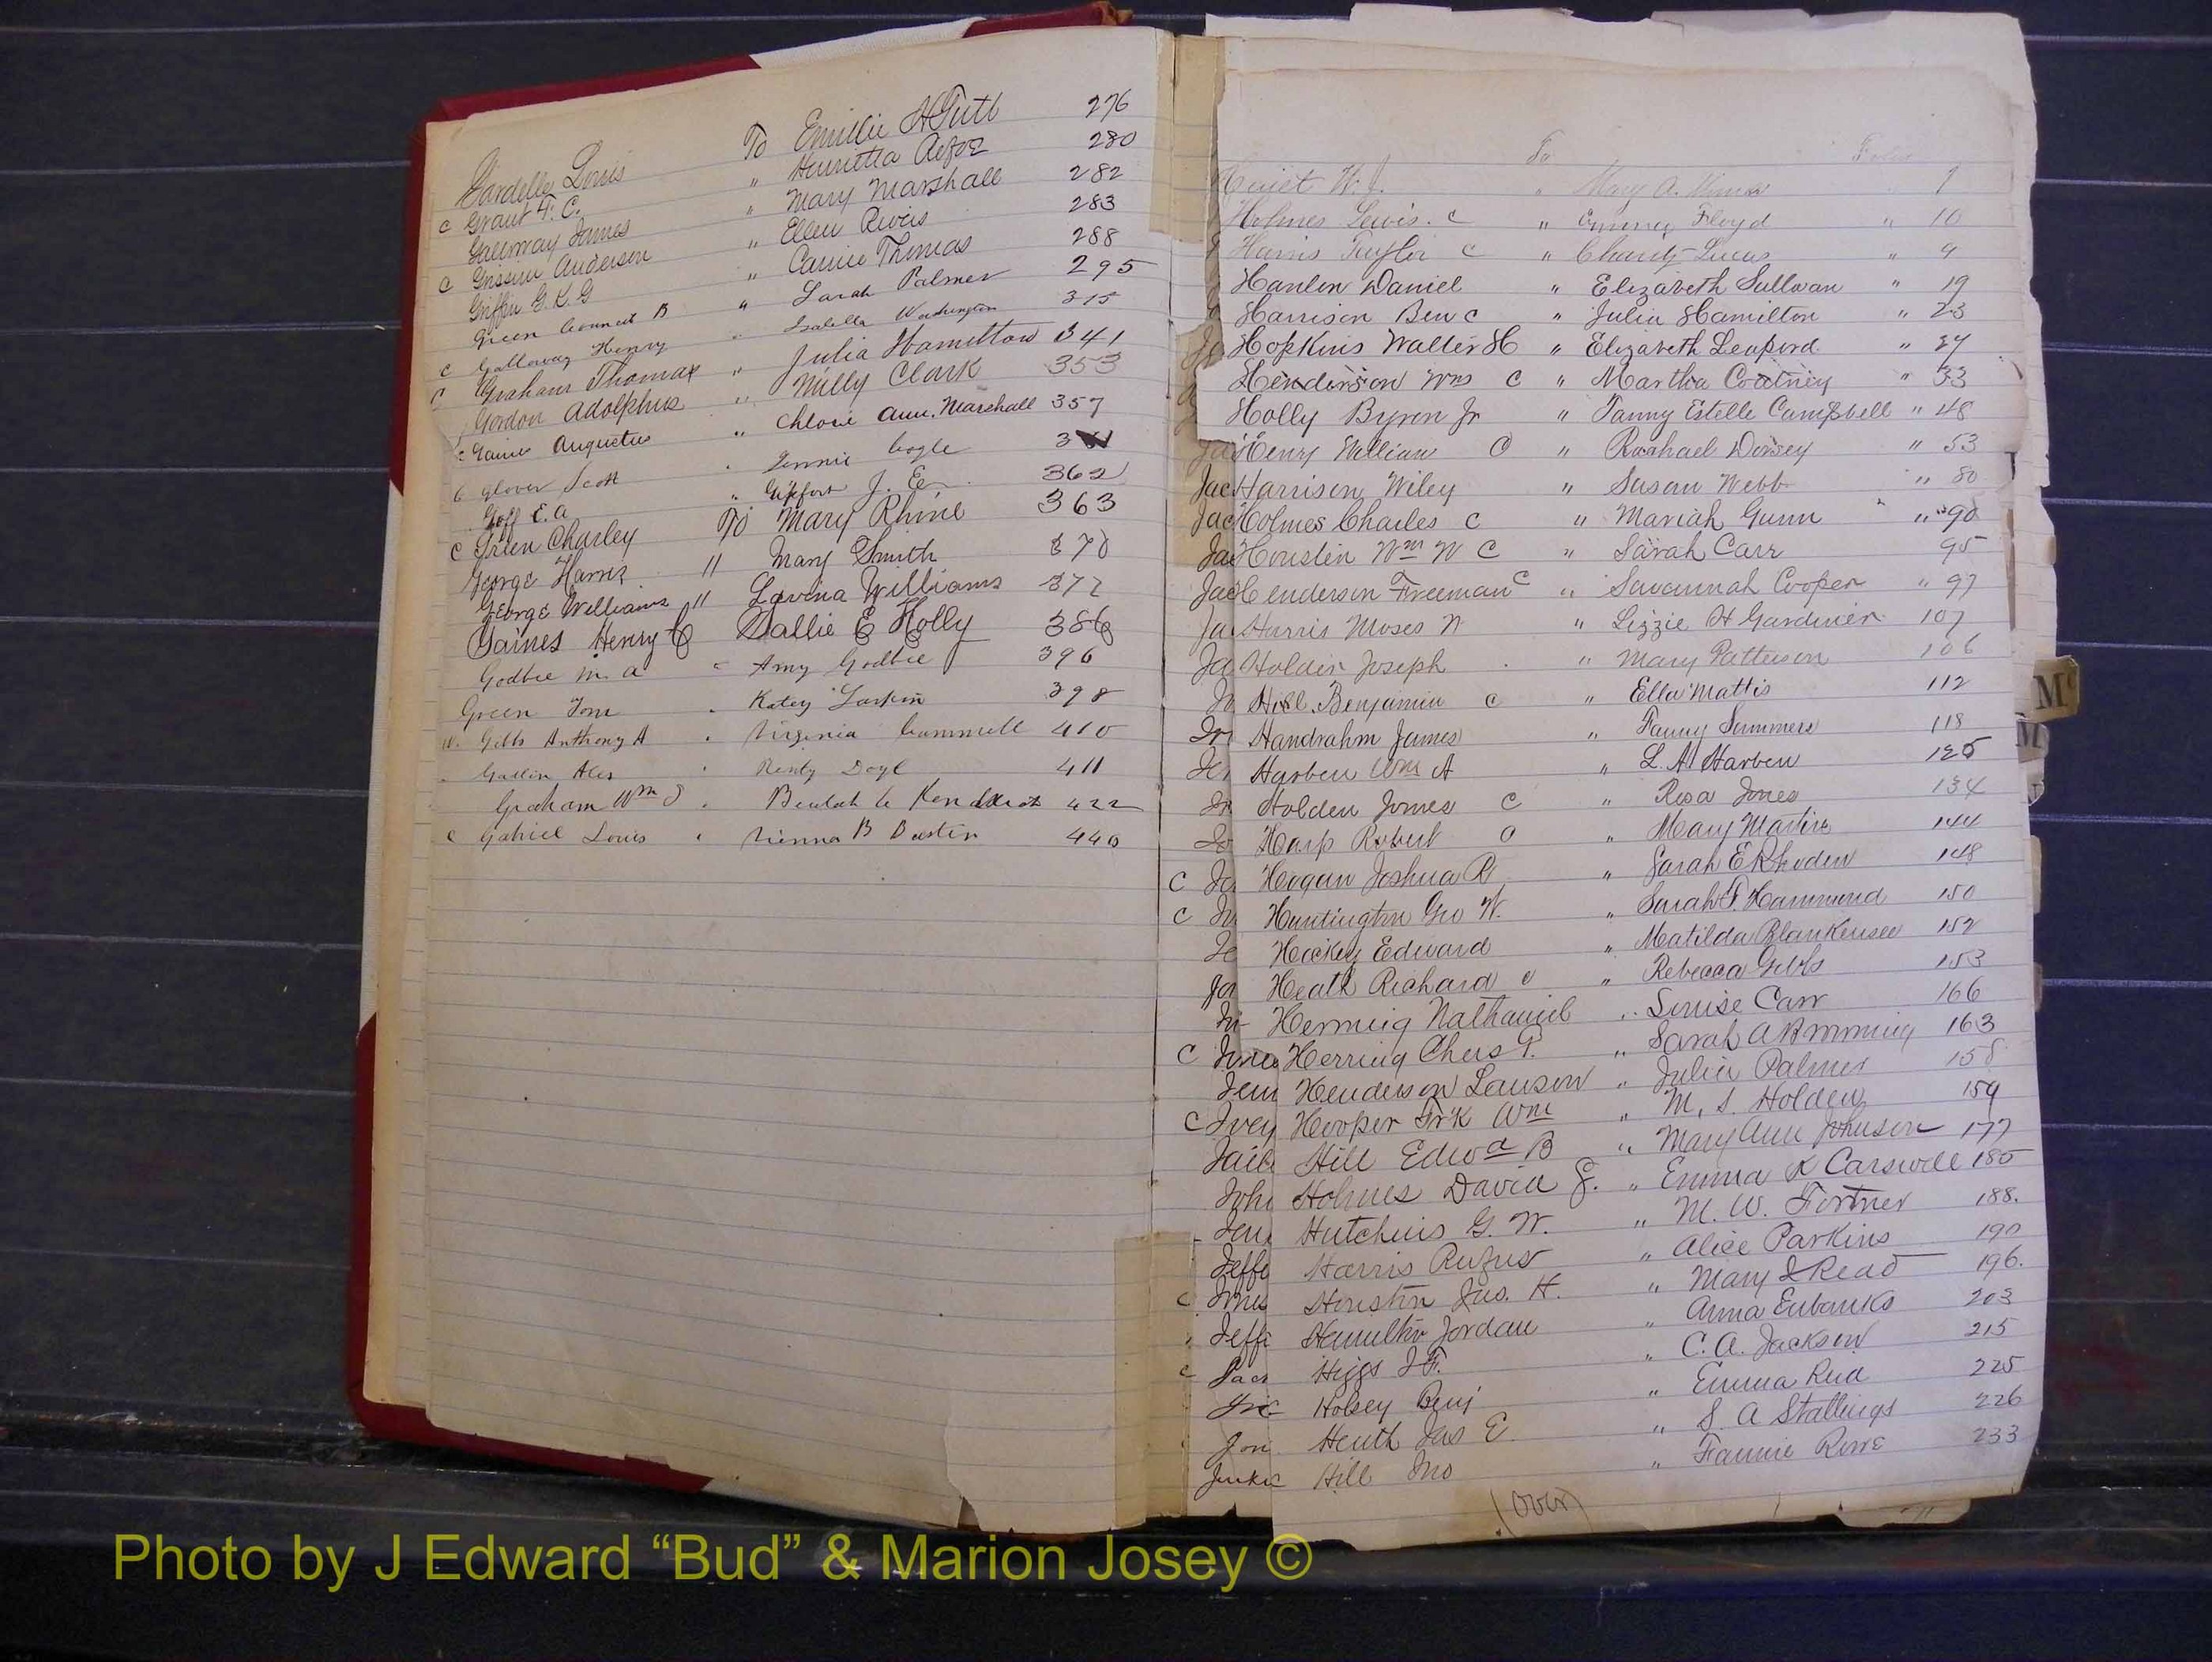 Gardelle Louis To Emillie H Tutt 276
c Grant F. C. " Henrietta 280
Galloway James " Mary Marshall 282
c Anderson " Ellen 283
Griffin G. K. G " Carrie Thomas 288
Green B " Sarah Palmer 295
c Galloway Henry " Isabella Washington 315
c Graham Thomas " Julia Hamilton 341
Gordon Adolphus " Milly Clark 353
c Gaines Augustus " Ann. Marshall 357
c Glover Scott " Jennie Cogle
Goff E. a " J. E. 362
c Green Charley To Mary Rhine 363
George Harris " Mary Smith 370
George Williams " Lavina Williams 372
Gaines Henry C Sallie E Holly 386
Godbee M. a " Amy Godbee 396
Green Tom " Katey Larkin 398
w. Gibbs Anthony A " Virginia Cammell 410
Alex " Doyl 411
Graham Wm J " Beulah 422
c Gabriel Louis " Vienna B 440
To Folio
W. J. " Mary A. 7
Holmes Lewis. c " Floyd " 10
Harris Taylor c " Charity Lucas " 9
Hanlon Daniel " Elizabeth Sullivan " 19
Harrison Ben c " Julia Hamilton " 23
Hopkins Walter H " Elizabeth Lenford " 27
Henderson Wm c " Martha Coatney " 33
Holly Byron Jr " Fanny Estelle Campbell " 48
Ja Henry William C " Rachael Dorsey " 53
Jac Harrison Wiley " Susan Webb " 80
Jac Holmes Charles c " Mariah Gunn " 90
Jac Houstin Wm W C " Sarah Carr 95
Jac Henderson Freeman c " Savannah Cooper " 97
Ja Harris Moses W " Lizzie H Gardiner 107
Ja Holden Joseph " Mary Patterson 106
Hill Benjamin c " Ella Mattis 112
Handrahm James " Fanny Sammers 118
Harben Wm A " L. A. Harben 125
Holden James C " Rosa Jones 134
Harp Robert C " Mary Martin 144
C Jo Hogan Joshua R " Sarah E Rhoden 148
C Huntington Geo W. " Sarah F. Hammond 150
Je Hickey Edward " Matilda Blankensee 152
Jo Heath Richard c " Rebecca Gibbs 153
Nathaniel " Louise Carr 166
C Herring Chas P. " Sarah A 163
Jem Henderson Lawson " Julia Palmer 158
C Ivey Hooper Frk Wm " M. S. Holden 159
Hill Edwd B " Mary Ann Johnson 177
John Holmes David J. " Emma K Carswell 185
Hutchins G. W. " M. W. Fortner 188.
Jeffe Harris Rufus " Alice Parkins 190
c Houston Jas. H. " Mary I Read 196.
Jeffe Hamilton Jordan " Anna Eubanks 203
c Higgs J F. " C. A. Jackson 215
Holsey Benj " Emma Reid 225
Jon Heath Jas E. " S A Stallings 226
Hill Jno " Fannie Rowe 233
(over)
M
Photo by J Edward “Bud” & Marion Josey ©